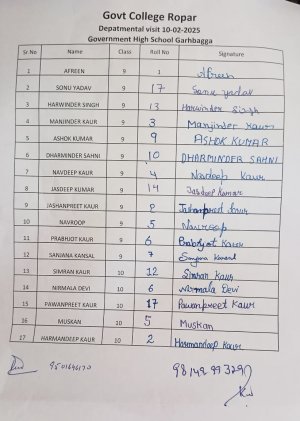 Govt College Ropar
Depatmental visit 10-02-2025
Government High School Garhbagga
Sr.No Name Class Roll No Signature
1 AFREEN 9 1 Afreen
2 SONU YADAV 9 17 Sonu yadav
3 HARWINDER SINGH 9 13 Harwinder Singh
4 MANJINDER KAUR 9 3 Manjinder Kaur
5 ASHOK KUMAR 9 9 ASHOK KUMAR
6 DHARMINDER SAHNI 9 10 DHARMINDER SAHNI
7 NAVDEEP KAUR 9 4 Navdeep Kaur
8 JASDEEP KUMAR 9 14 Jasdeep Kumar
9 JASHANPREET KAUR 9 2 Jashanpreet kaur
10 NAVROOP 9 5 Navroop
11 PRABHJOT KAUR 9 6 Prabhjot Kaur
12 SANJANA KANSAL 9 7 Sanjana Kansal
13 SIMRAN KAUR 10 12 Simran Kaur
14 NIRMALA DEVI 10 6 Nirmala Devi
15 PAWANPREET KAUR 10 17 Pawanpreet Kaur
16 MUSKAN 10 5 Muskan
17 HARMANDEEP KAUR 10 2 Harmandeep Kaur